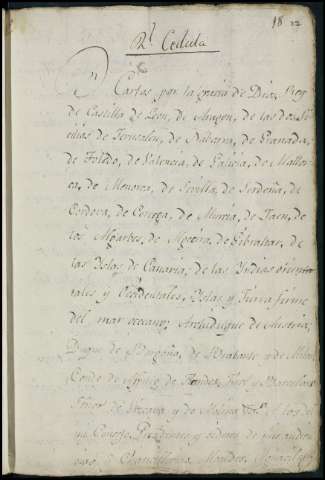 18 22
Rl Cedula
Dn Carlos por la gracia de Dios, Rey
de Castilla de Leon, de Aragon, de las dos Si
cilias de Jerusalen, de Nabarra, de Granada,
de Toledo, de Valencia, de Galicia, de Mallor
ca, de Menorca, de Sevilla, de Serdeña, de
Cordova, de Corcega, de Murcia, de Jaen, de
los Algarbes, de Algecira, de Gibraltar, de
las Yslas de Canaria, de las Yndias orien
tales y Occidentales, Yslas y Tierra firme
del mar occeano; Archiduque de Austria;
Duque de Borgoña, de Brabante y de Milan
Conde de Flandes, Tirol y Barcelona
Señor de Vizcaya y de Molina &a. A los de
mi Consejo, Presidentes y oidores de mis audien
cias, y Chancillerias, Alcaldes, Alguaciles